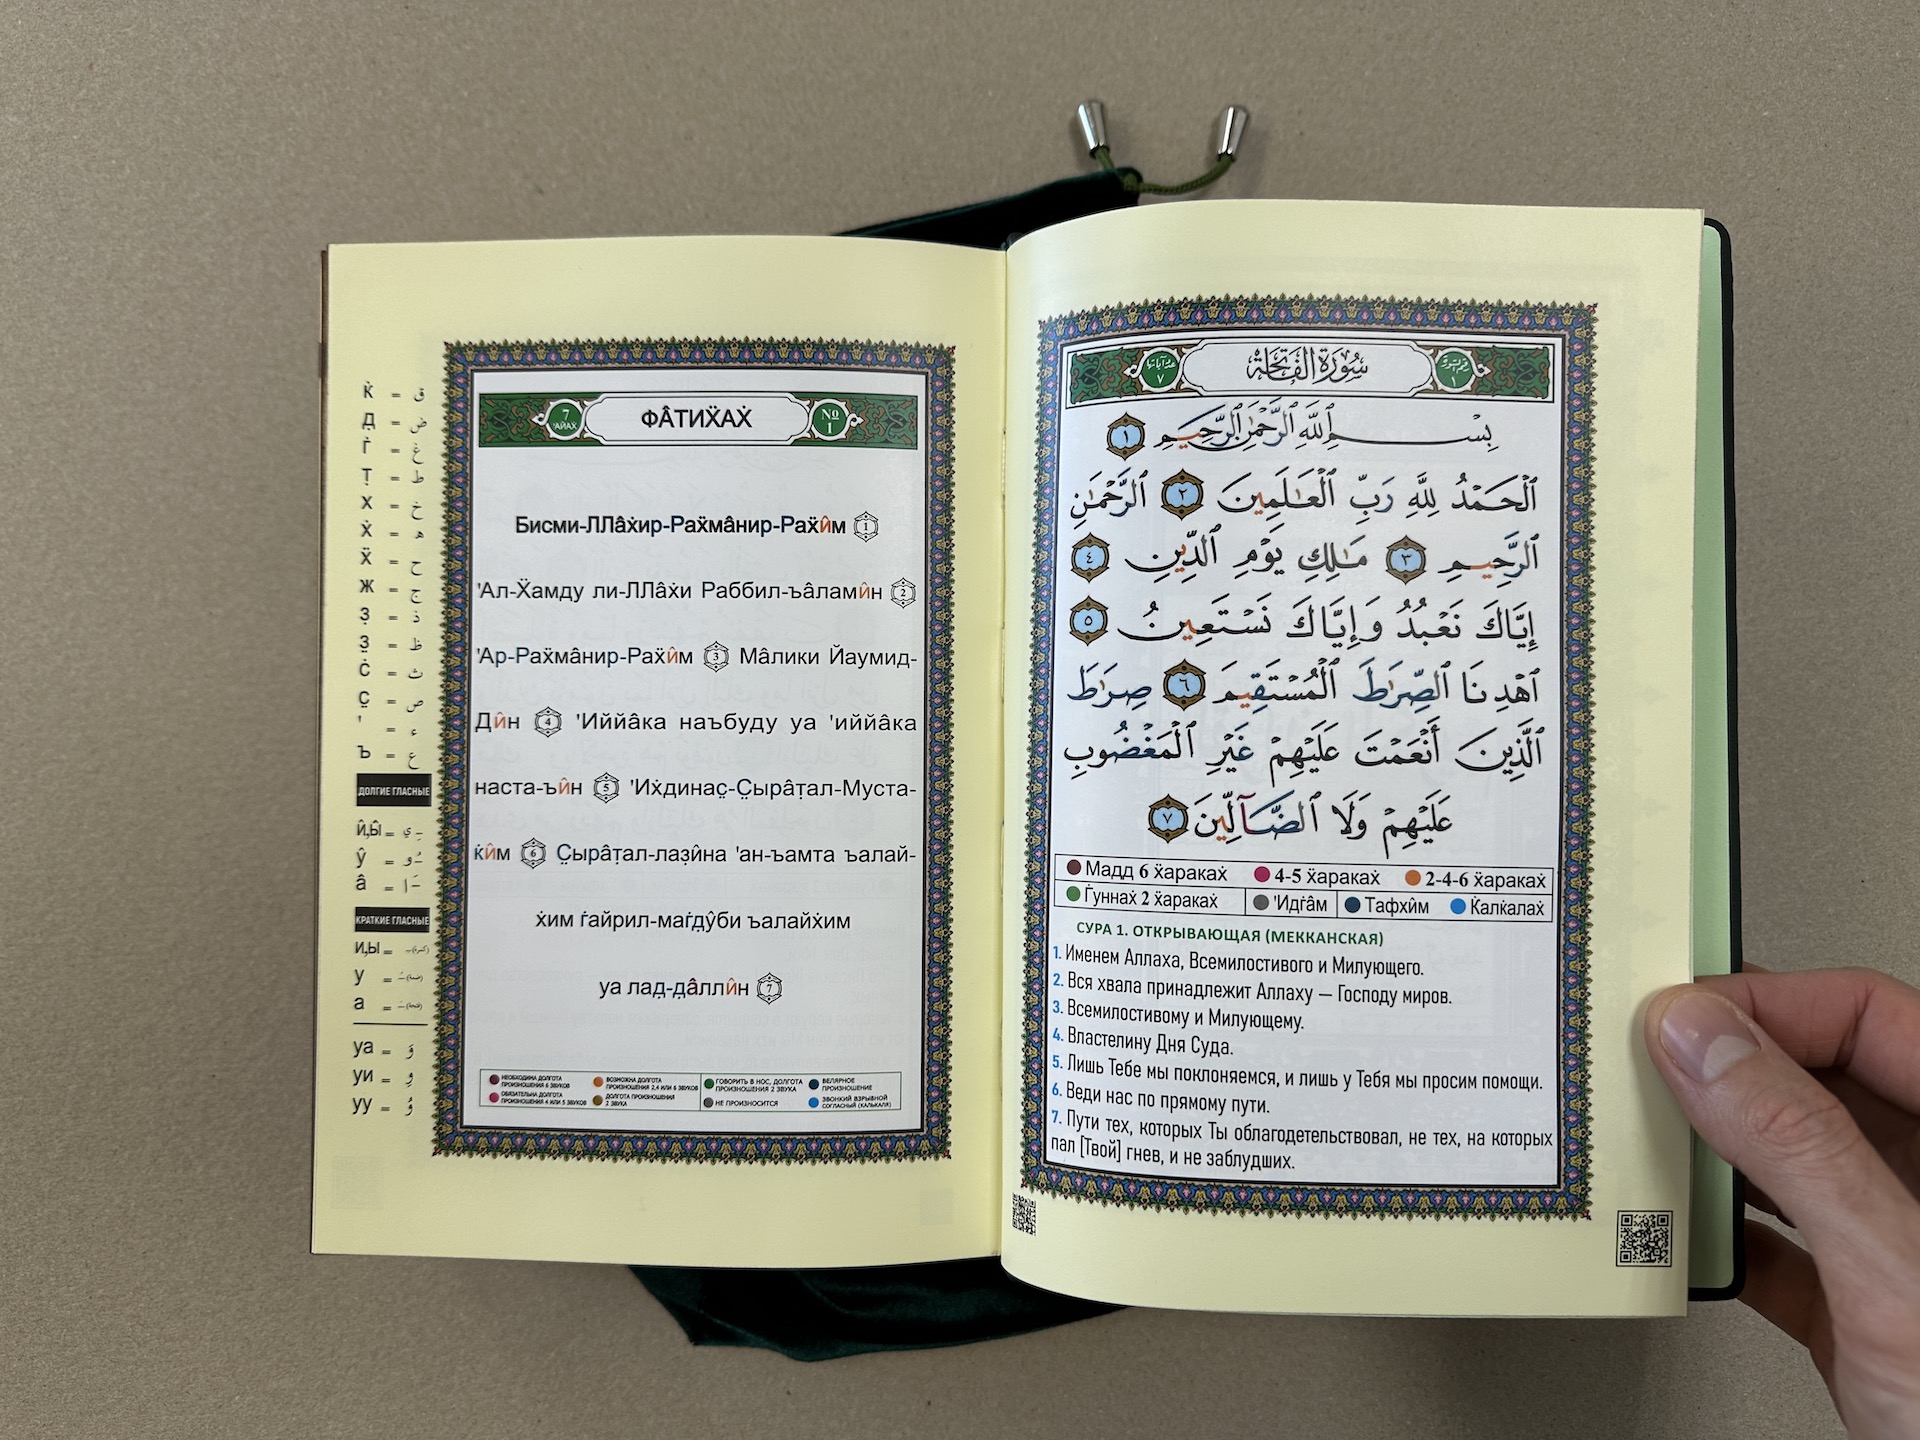 К̇ = ق
Д̣ = ض
Г̇ = غ
Т̣ = ط
Х = خ
Х̇ = ه
Х̈ = ح
Ж = ج
З̣ = ذ
З̤ = ظ
С̇ = ث
С̣ = ص
' = ء
Ъ = ع
ДОЛГИЕ ГЛАСНЫЕ
и̂,ы̂ = ـِي
у̂ = ـُو
а̂ = ـَا
КРАТКИЕ ГЛАСНЫЕ
и,ы = ـِ (كسرة)
у = ـُ (ضمة)
а = ـَ (فتحة)
уа = وَ
уи = وِ
уу = وُ
7 'АЙАХ̇
ФА̂ТИХ̈АХ̇
№ 1
Бисми-ЛЛа̂х̇ир-Рах̈ма̂нир-Рах̈и̂м 1
'Ал-Х̈амду ли-ЛЛа̂х̇и Раббил-ъа̂лами̂н 2
'Ар-Рах̈ма̂нир-Рах̈и̂м 3 Ма̂лики Йаумид-
Ди̂н 4 'Иййа̂ка наъбуду уа 'иййа̂ка
наста-ъи̂н 5 'Их̇динас̣-С̣ыра̂т̣ал-Муста-
к̇и̂м 6 С̣ыра̂т̣ал-лаз̣и̂на 'ан-ъамта ъалай-
х̇им г̇айрил-маг̇д̣у̂би ъалайх̇им
уа лад̣-д̣а̂лли̂н 7
НЕОБХОДИМА ДОЛГОТА ПРОИЗНОШЕНИЯ 6 ЗВУКОВ
ВОЗМОЖНА ДОЛГОТА ПРОИЗНОШЕНИЯ 2,4 ИЛИ 6 ЗВУКОВ
ГОВОРИТЬ В НОС, ДОЛГОТА ПРОИЗНОШЕНИЯ 2 ЗВУКА
ВЕЛЯРНОЕ ПРОИЗНОШЕНИЕ
ОБЯЗАТЕЛЬНА ДОЛГОТА ПРОИЗНОШЕНИЯ 4 ИЛИ 5 ЗВУКОВ
ДОЛГОТА ПРОИЗНОШЕНИЯ 2 ЗВУКА
НЕ ПРОИЗНОСИТСЯ
ЗВОНКИЙ ВЗРЫВНОЙ СОГЛАСНЫЙ (КАЛЬКАЛЯ)
رقم السورة ١
سُورَةُ الْفَاتِحَة
عدد آياتها ٧
بِسْمِ ٱللَّهِ ٱلرَّحْمَٰنِ ٱلرَّحِيمِ ١
ٱلْحَمْدُ لِلَّهِ رَبِّ ٱلْعَٰلَمِينَ ٢ ٱلرَّحْمَٰنِ
ٱلرَّحِيمِ ٣ مَٰلِكِ يَوْمِ ٱلدِّينِ ٤
إِيَّاكَ نَعْبُدُ وَإِيَّاكَ نَسْتَعِينُ ٥
ٱهْدِنَا ٱلصِّرَٰطَ ٱلْمُسْتَقِيمَ ٦ صِرَٰطَ
ٱلَّذِينَ أَنْعَمْتَ عَلَيْهِمْ غَيْرِ ٱلْمَغْضُوبِ
عَلَيْهِمْ وَلَا ٱلضَّآلِّينَ ٧
Мадд 6 х̈араках̇ 4-5 х̈араках̇ 2-4-6 х̈араках̇
Г̇уннах̇ 2 х̈араках̇ 'Идг̇а̂м Тафхи̂м К̇алк̇алах̇
СУРА 1. ОТКРЫВАЮЩАЯ (МЕККАНСКАЯ)
1. Именем Аллаха, Всемилостивого и Милующего.
2. Вся хвала принадлежит Аллаху — Господу миров.
3. Всемилостивому и Милующему.
4. Властелину Дня Суда.
5. Лишь Тебе мы поклоняемся, и лишь у Тебя мы просим помощи.
6. Веди нас по прямому пути.
7. Пути тех, которых Ты облагодетельствовал, не тех, на которых
пал [Твой] гнев, и не заблудших.